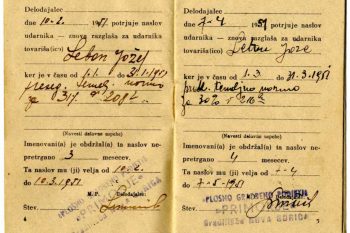 Delodajalec
dne 10.2. 1951 potrjuje naslov
udarnika — znova razglaša za udarnika
tovariša(ico) Lebon Jožef
ker je v času od 1.1. 31.1.1951
(Navesti delovne uspehe)
Imenovani(a) je obdržal(a) ta naslov ne-
pretrgano 3 mesecev.
Ta naslov mu (ji) velja od 10.2.
do 10.3.1951
M.P. Delodajalec:
Štev.
4
Delodajalec
dne 7-4 1951 potrjuje naslov
udarnika — znova razglaša za udarnika
tovariša(ico) Lebon Jože
ker je v času od 1.3. 31.3.1951
(Navesti delovne uspehe)
Imenovani(a) je obdržal(a) ta naslov ne-
pretrgano 4 mesecev.
Ta naslov mu (ji) velja od 7-4
do 7-5-1951
SPLOŠNO GRADBENO PODJETJE
"PRIMORJE"
Gradilišče NOVA GORICA
Štev.
5